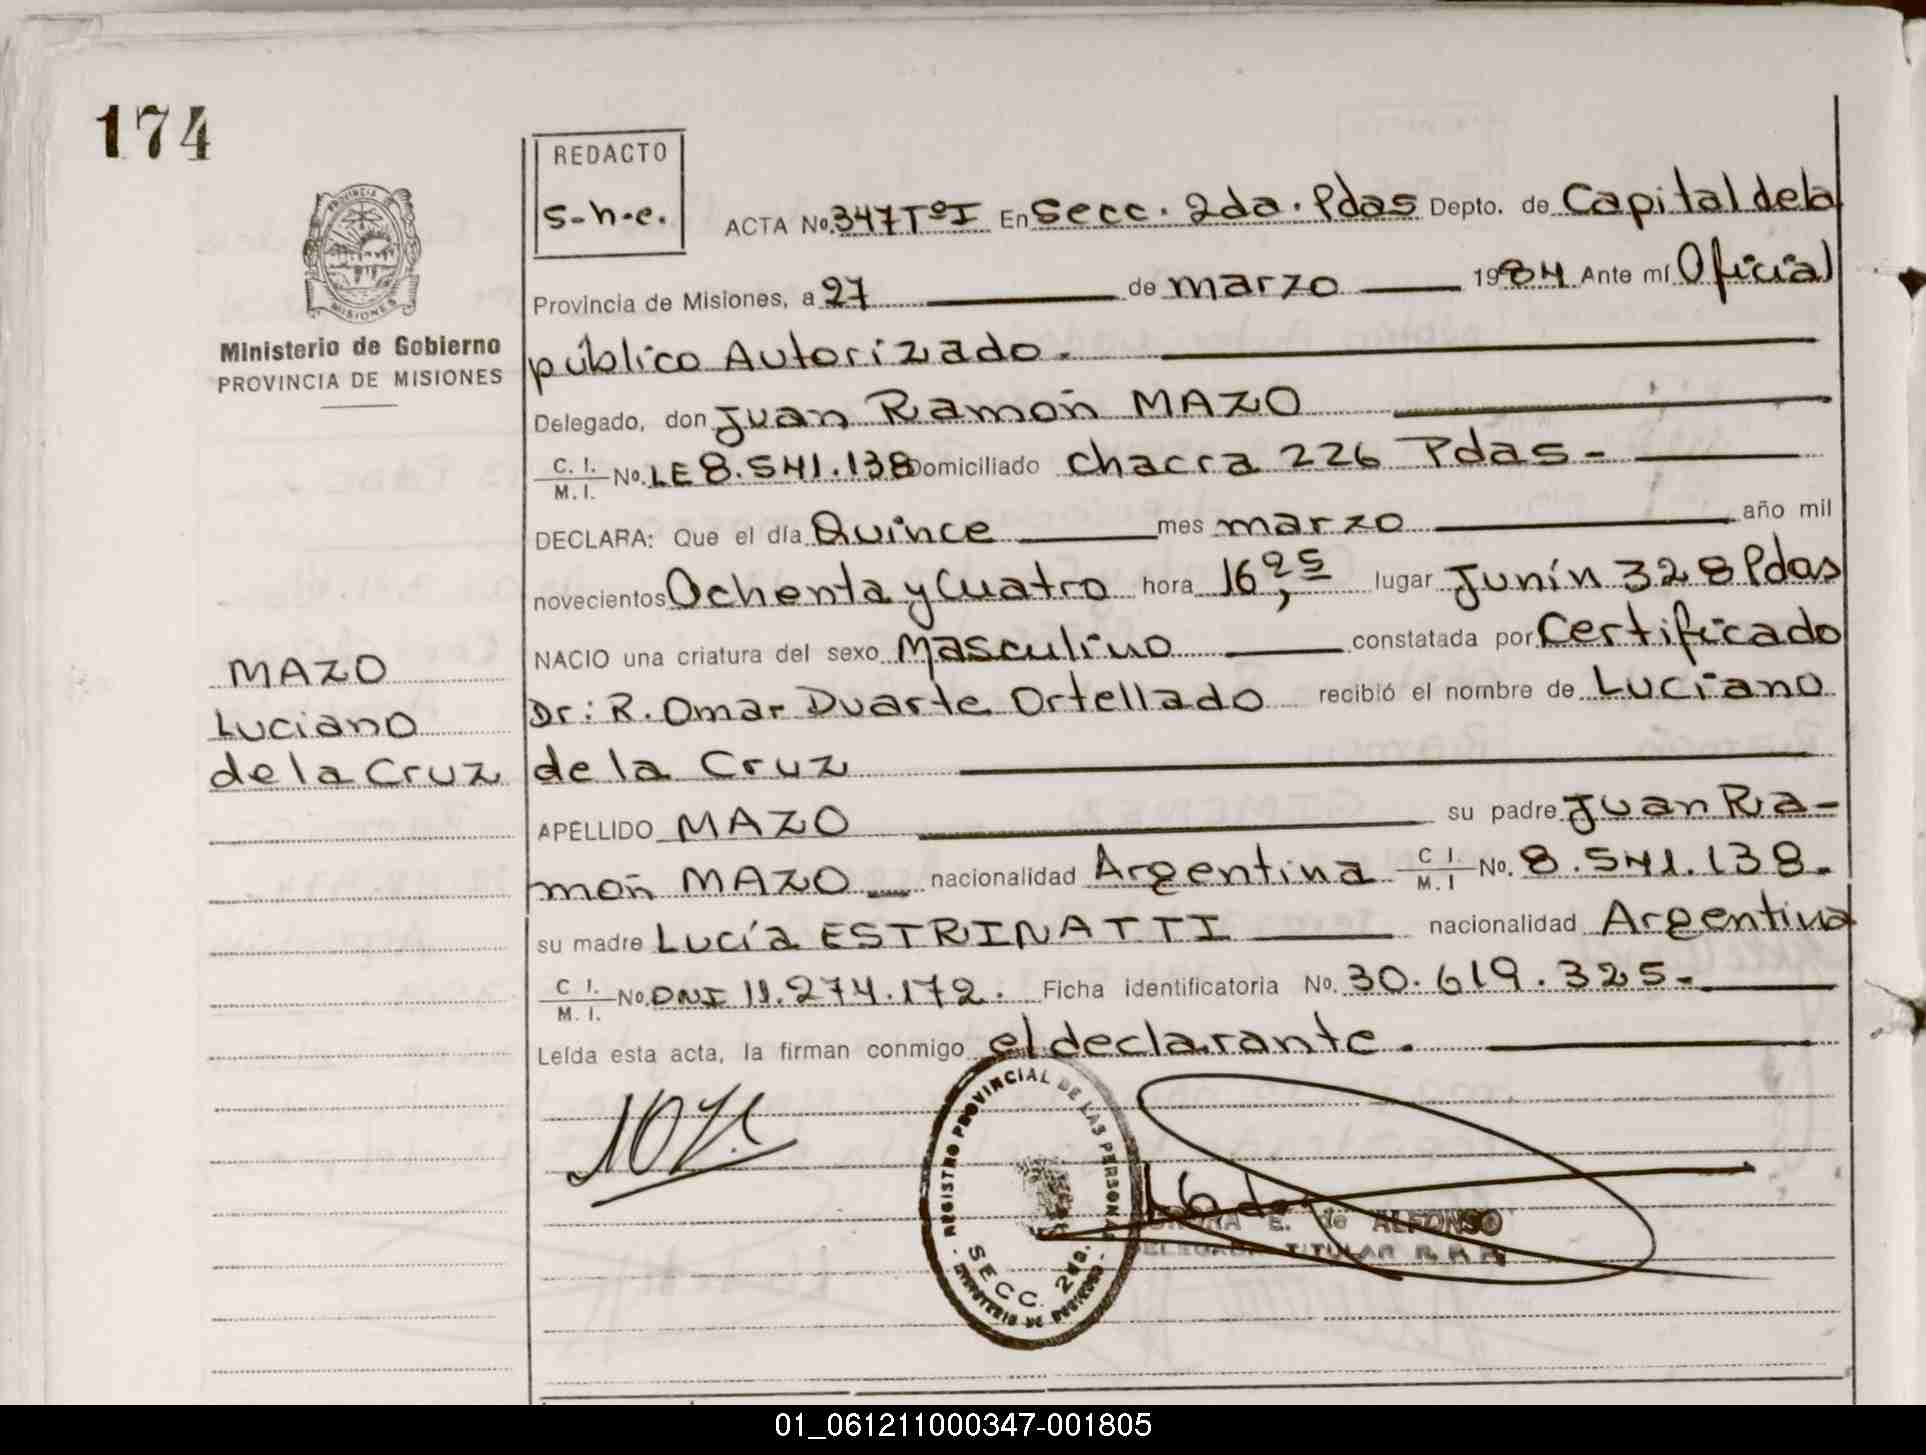 174
REDACTO
s-h-e.
ACTA No. 347 TºI En Secc. 2da. Pdas Depto. de Capital de la
Provincia de Misiones, a 27 de marzo 1984 Ante mí Oficial
público Autorizado.
Delegado, don Juan Ramón MAZO
C. I. / M. I. No. LE 8.541.138 Domiciliado chacra 226 Pdas-
DECLARA: Que el día Quince mes marzo año mil
novecientos Ochenta y Cuatro hora 16,25 lugar Junín 328 Pdas
NACIO una criatura del sexo Masculino constatada por Certificado
Dr: R. Omar Duarte Ortellado recibió el nombre de Luciano
de la Cruz
APELLIDO MAZO su padre Juan Ra-
món MAZO nacionalidad Argentina C I. / M. I No. 8.541.138.
su madre Lucía ESTRINATTI nacionalidad Argentina
C I. / M. I. No. DNI 11.274.172. Ficha identificatoria No. 30.619.325-
Leída esta acta, la firman conmigo el declarante.
PROVINCIA
MISIONES
Ministerio de Gobierno
PROVINCIA DE MISIONES
MAZO
Luciano
de la Cruz
REGISTRO PROVINCIAL DE LAS PERSONAS
SECC. 2da.
E. de ALFONSO
TITULAR
01_061211000347-001805